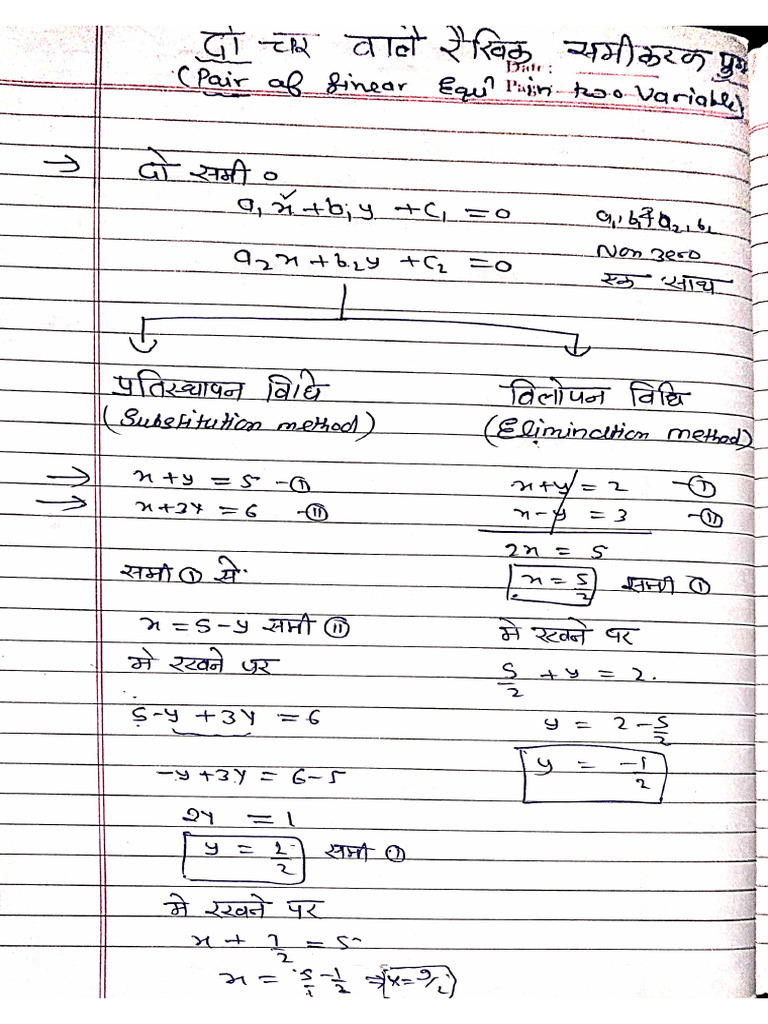 दो चार वाले रैखिक समीकरक युग्म
Date:
(Pair of linear Equi in two Variable)
→ दो समी०
a₁x + b₁y + c₁ = 0
a₂x + b₂y + c₂ = 0
Non zero
एक साथ
प्रतिस्थापन विधि
(Substitution method)
→ x + y = 5 -①
→ x + 3y = 6 -②
समी ① से
x = 5 - y समी ②
मे रखने पर
5 - y + 3y = 6
-y + 3y = 6 - 5
2y = 1
y = 1/2 समी ①
मे रखने पर
x + 1/2 = 5
x = 5/1 - 1/2 ⇒ x = 9/2
विलोपन विधि
(Elimination method)
x + y = 2 -①
x - y = 3 -②
2x = 5
x = 5/2 समी ①
मे रखने पर
5/2 + y = 2.
y = 2 - 5/2
y = -1/2